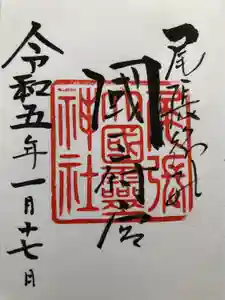 尾張総社
國府宮
令和五年一月十七日
大國靈
神社